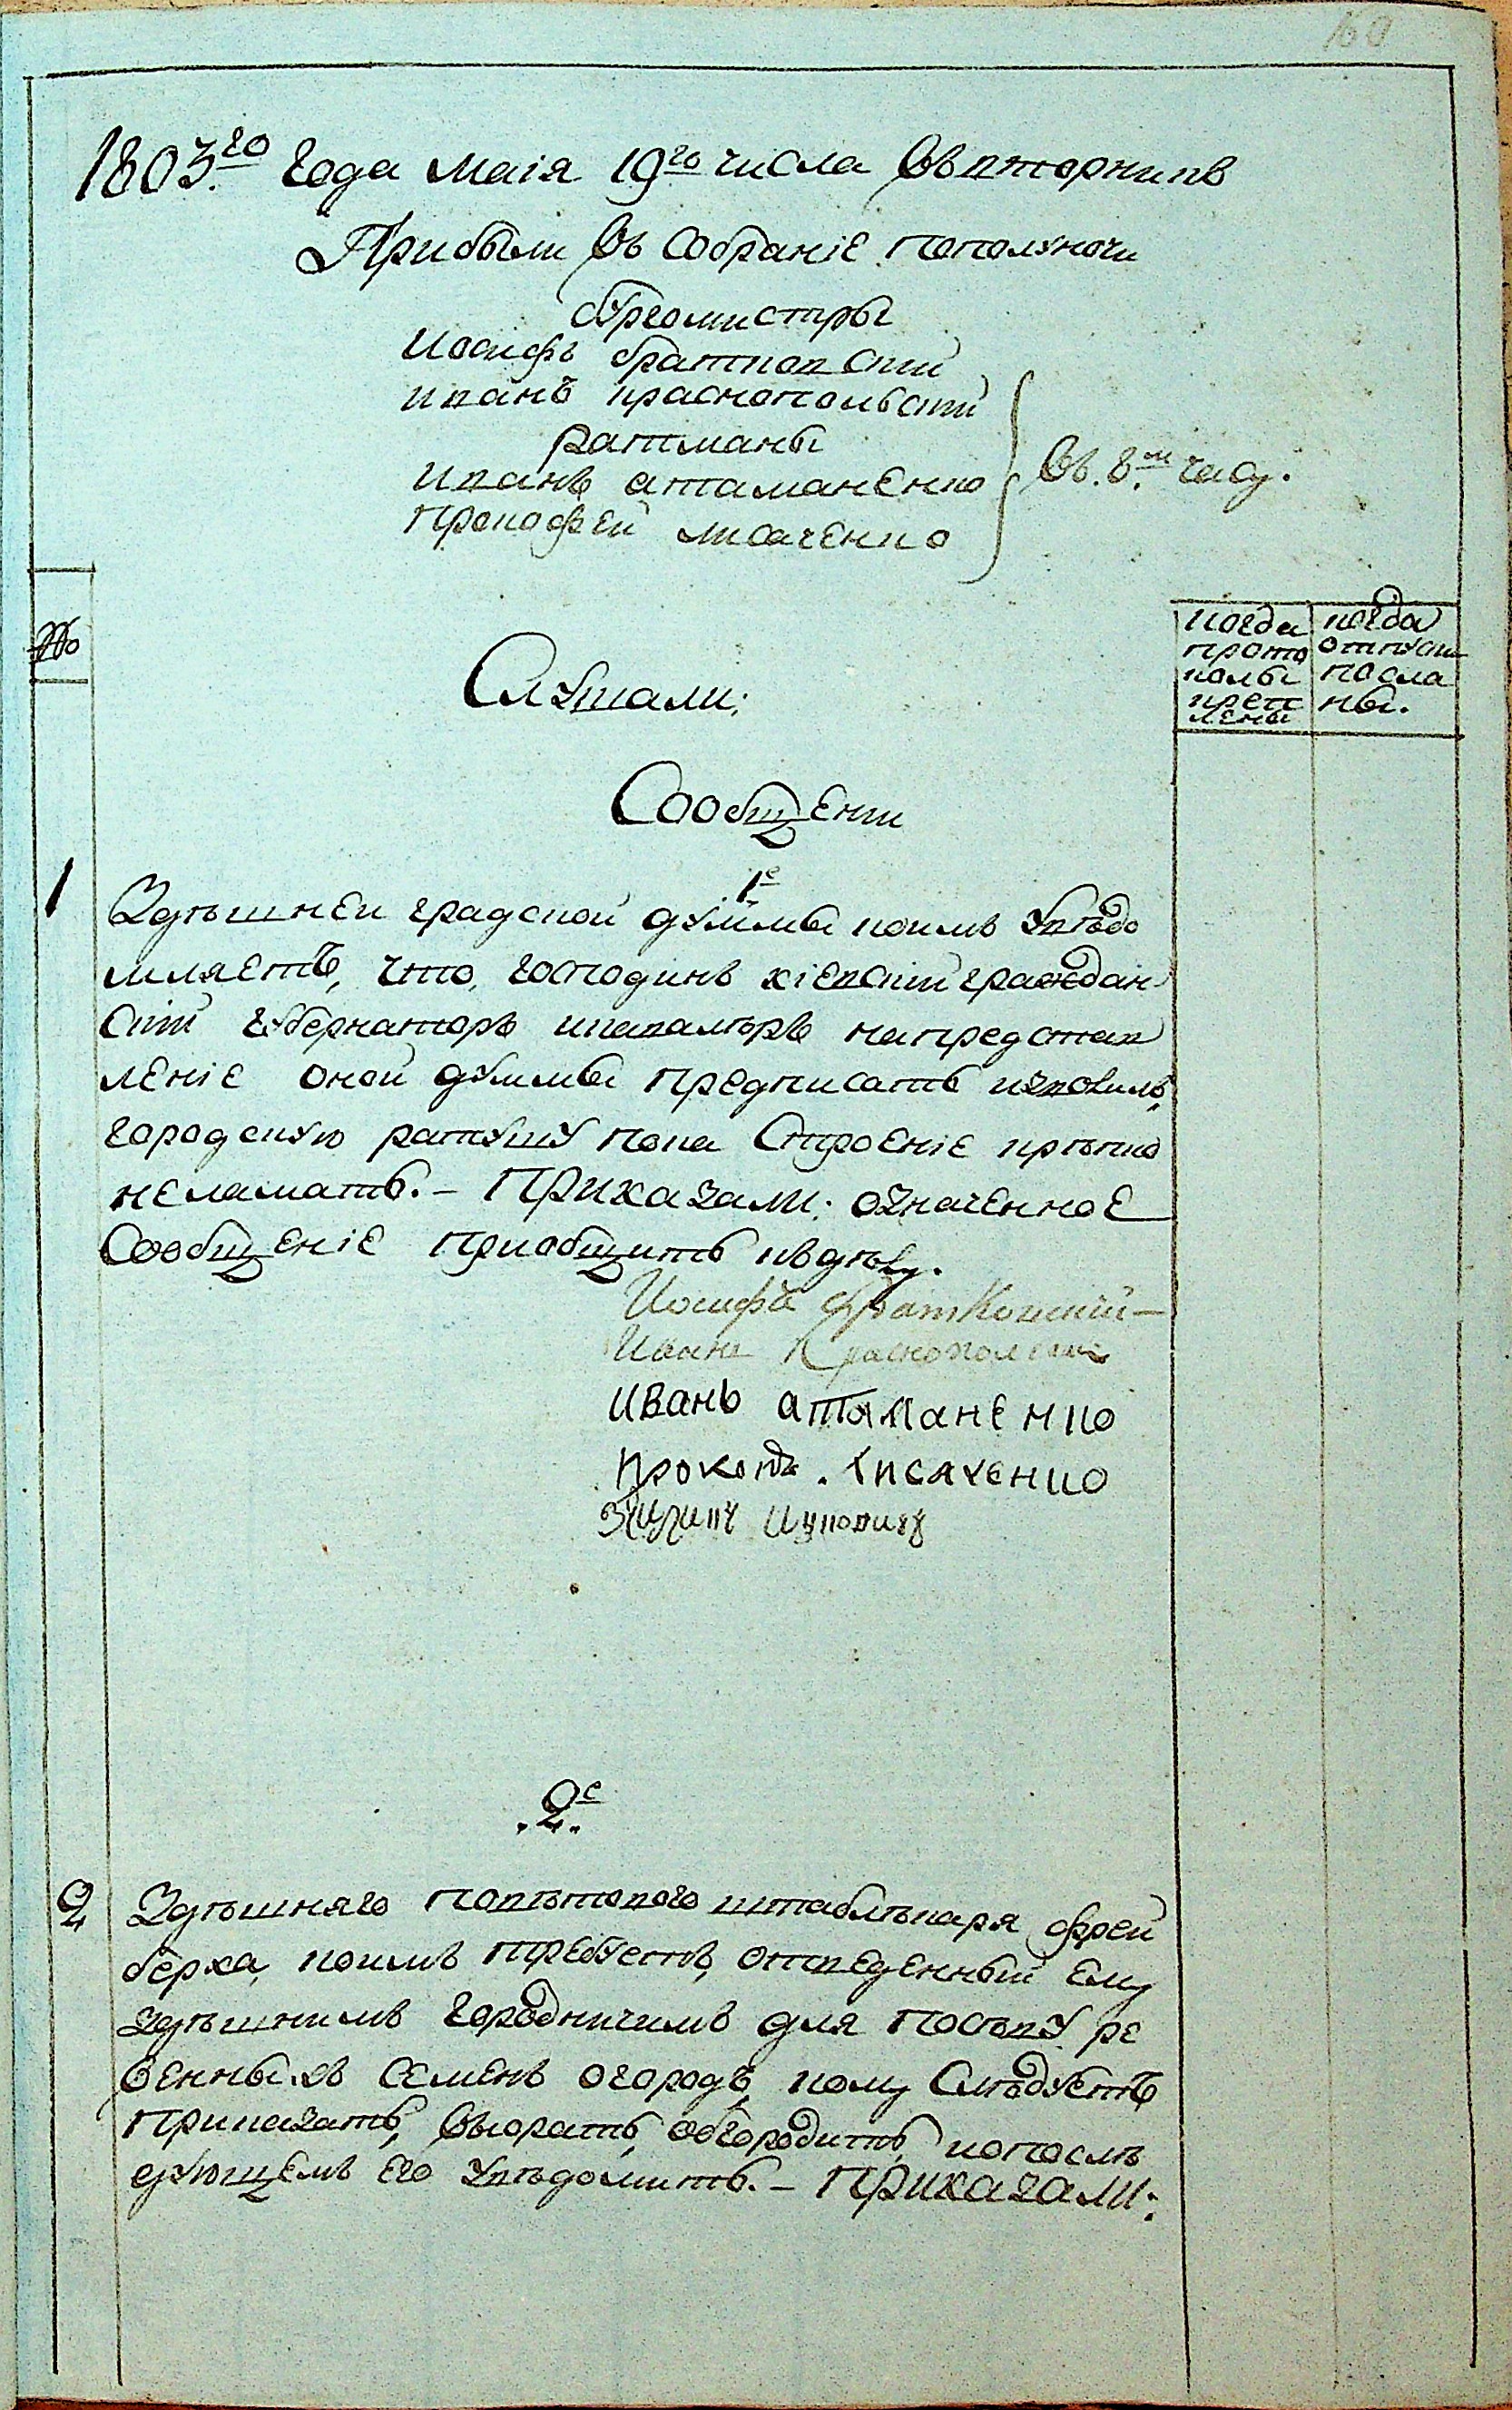 160
1803го года маія 19го числа въ вторникъ
Прибыли въ собраніе пополуночи
бургомистры
Иосифъ братковскій
иванъ краснопольскій
ратманы
иванъ атаманенко
прокофей лисаченко
въ 8м часу.
№
когда прото колы крепленны
когда отпуски посланы.
Слушали:
Сообщении
1е
1 Здѣшней градской думмы коимъ увѣдо
мляетъ, что, господинъ кіевскій граждан
скій губернаторъ и кавалеръ на представ
леніе оной думмы предписать изволилъ,
городскую ратушу пока строеніе крѣпко
не ламать. – Приказали: означенное
Сообщеніе приобщить къ дѣлу.
Иосифъ Братковскій
Иванъ Краснополскій
Иванъ атаманенко
Прокопъ Лисаченко
2е
2 Здѣшняго повѣтового штаблѣкаря фрей
берха, коимъ требуетъ, отведенный ему
здѣшнимъ городничимъ для посѣву ре
венныхъ семенъ огородъ, кому слѣдуетъ
приказать, выорать, обгородить, и о послѣ
дующемъ его увѣдомить. – Приказали: